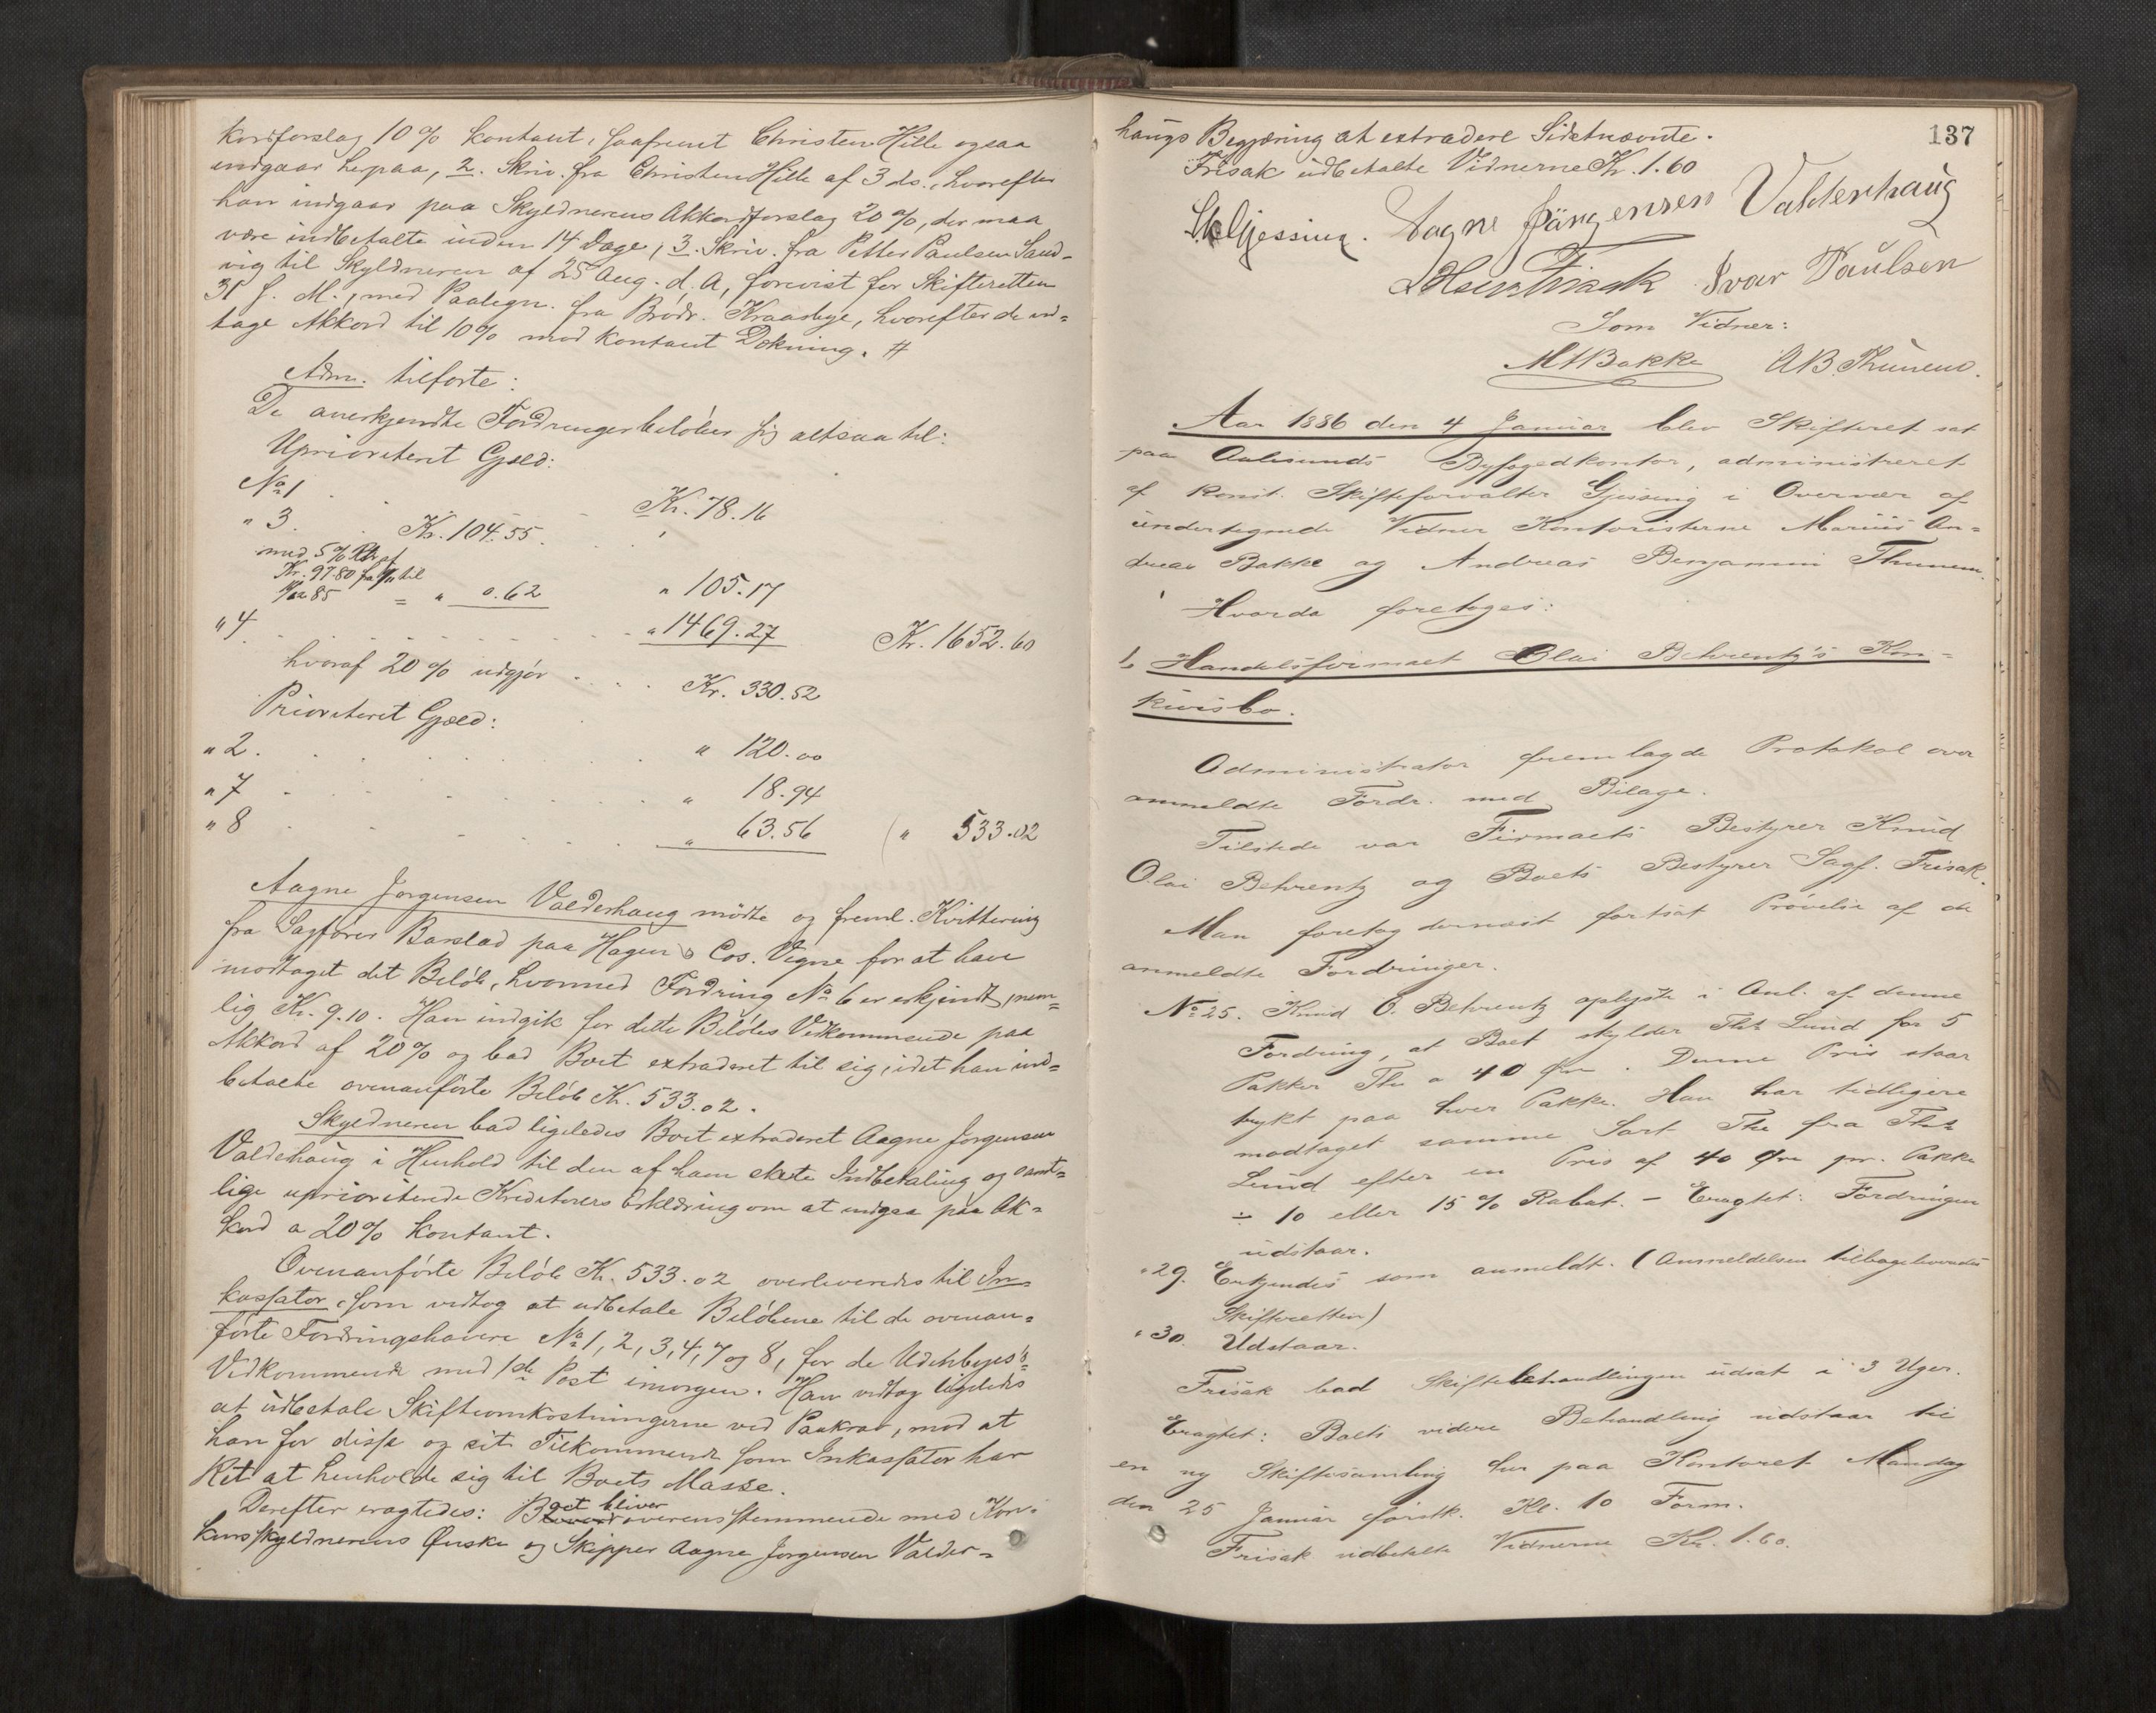 kordforslag 10 % kontant, saafremt Christen Hille ogsaa
indgaar herpaa, 2. Skriv. fra Christen Hille af 3 ds., hvorefter
han indgaar paa Skyldnerens Akkordforslag 20 %, der maa
være indbetalte inden 14 Dage, 3. Skriv. fra Petter Paulsen Sand-
vig til Skyldneren af 25 Aug. d. A, forevist for Skifteretten
31 f. M., med Paategn. fra Brödr. Kraasbye, hvorefter de ind=
tage Akkord til 10 % mod kontant Dekning. #
Adm. tilförte:
De anerkjendte Fordringer belöber sig altsaa til:
Uprioriteret Gjæld:
No 1 . . Kr. 78.16
" 3. . Kr. 104.55. . .
med 5 % Rtr af
Kr. 97.80 fra til
85 = " 0.62 " 105.17
" 4 . . . . " 1469.27 Kr. 1652.60
hvoraf 20 % udgjör . . . . Kr. 330.52
Prioriteret Gjæld:
" 2. . . . " 120.00
" 7 . . . " 18.94
" 8 . . . " 63.56 ( " 533.02
Aagne Jorgensen Valderhaug mödte og freml. Kvittering
fra Sagförer Barstad paa Hagen & Cos. Vegne for at have
modtaget det Belöb, hvormed Fordring No 6 er erkjendt, nem=
lig Kr. 9.10. Han indgik for dette Belöbs Vedkommende paa
Akkord af 20 % og bad Boet extraderet til sig, idet han ind=
betalte ovenanförte Belöb Kr. 533.02.
Skyldneren bad ligeledes Boet extraderet Aagne Jorgensen
Valdehaug i Henhold til den af ham skete Indbetaling og samt=
lige uprioriterede Kreditorers Erklæring om at indgaa paa Ak=
kord a 20 % kontant.
Ovenanförte Belöb Kr. 533.02 overleveredes til In-
kassator, som vedtog at udbetale Belöbene til de ovenan=
förte Fordringshavere No 1, 2, 3, 4, 7 og 8, for de Udenbyes's
Vedkommende med 1ste Post imorgen. Han vedtog ligeledes
at udbetale Skifteomkostningerne ved Paakrav, mod at
han for disse og sit Tilkommende som Inkassator har
Ret at henholde sig til Boets Masse.
Derefter eragtedes: Boet bliver overensstemmende med Kon-
kursskyldnerens Ønske og Skipper Aagne Jorgensen Valder=
137
haugs Begjæring at extradere Sidstnævnte.
Frisak udbetalte Vidnerne Kr. 1.60
Gjessing. Aagne Jørgensen Valderhaug
Frisak Ivar Paulsen
Som Vidner:
M A Bakke A B. Thunem.
Aar 1886 den 4 Januar blev Skifteret sat
paa Aalesunds Byfogedkontor, administreret
af konst. Skifteforvalter Gjessing i Overvær af
undertegnede Vidner Kontoristerne Marius An=
dreas Bakke og Andreas Benjamin Thunem.
Hvorda foretoges:
1. Handelsfirmaet Olai Behrentz's Kon=
kursbo.
Administrator fremlagde Protokol over
anmeldte Fordr. med Bilage.
Tilstede var Firmaets Bestyrer Knud
Olai Behrentz og Boets Bestyrer Sagf. Frisak.
Man foretog dernæst fortsat Prövelse af de
anmeldte Fordringer.
No 25. Knud O. Behrentz oplyste i Anl. af denne
Fordring, at Boet skylder Lund for 5
Pakker The a 40 Øre. Denne Pris staar
trykt paa hver Pakke. Han har tidligere
modtaget samme Sort The fra
Lund efter en Pris af 40 Øre pr. Pakke
÷ 10 eller 15 % Rabat. — Eragtet: Fordringen
udstaar.
" 29. Erkjendes som anmeldt. (Anmeldelsen tilbageleveredes
Skifteretten)
" 30. Udstaar.
Frisak bad Skiftebehandlingen udsat i 3 Uger.
Eragtet: Boets videre Behandling udstaar til
en ny Skiftesamling her paa Kontoret Mandag
den 25 Januar förstk. Kl. 10 Form.
Frisak udbetalte Vidnerne Kr. 1.60.